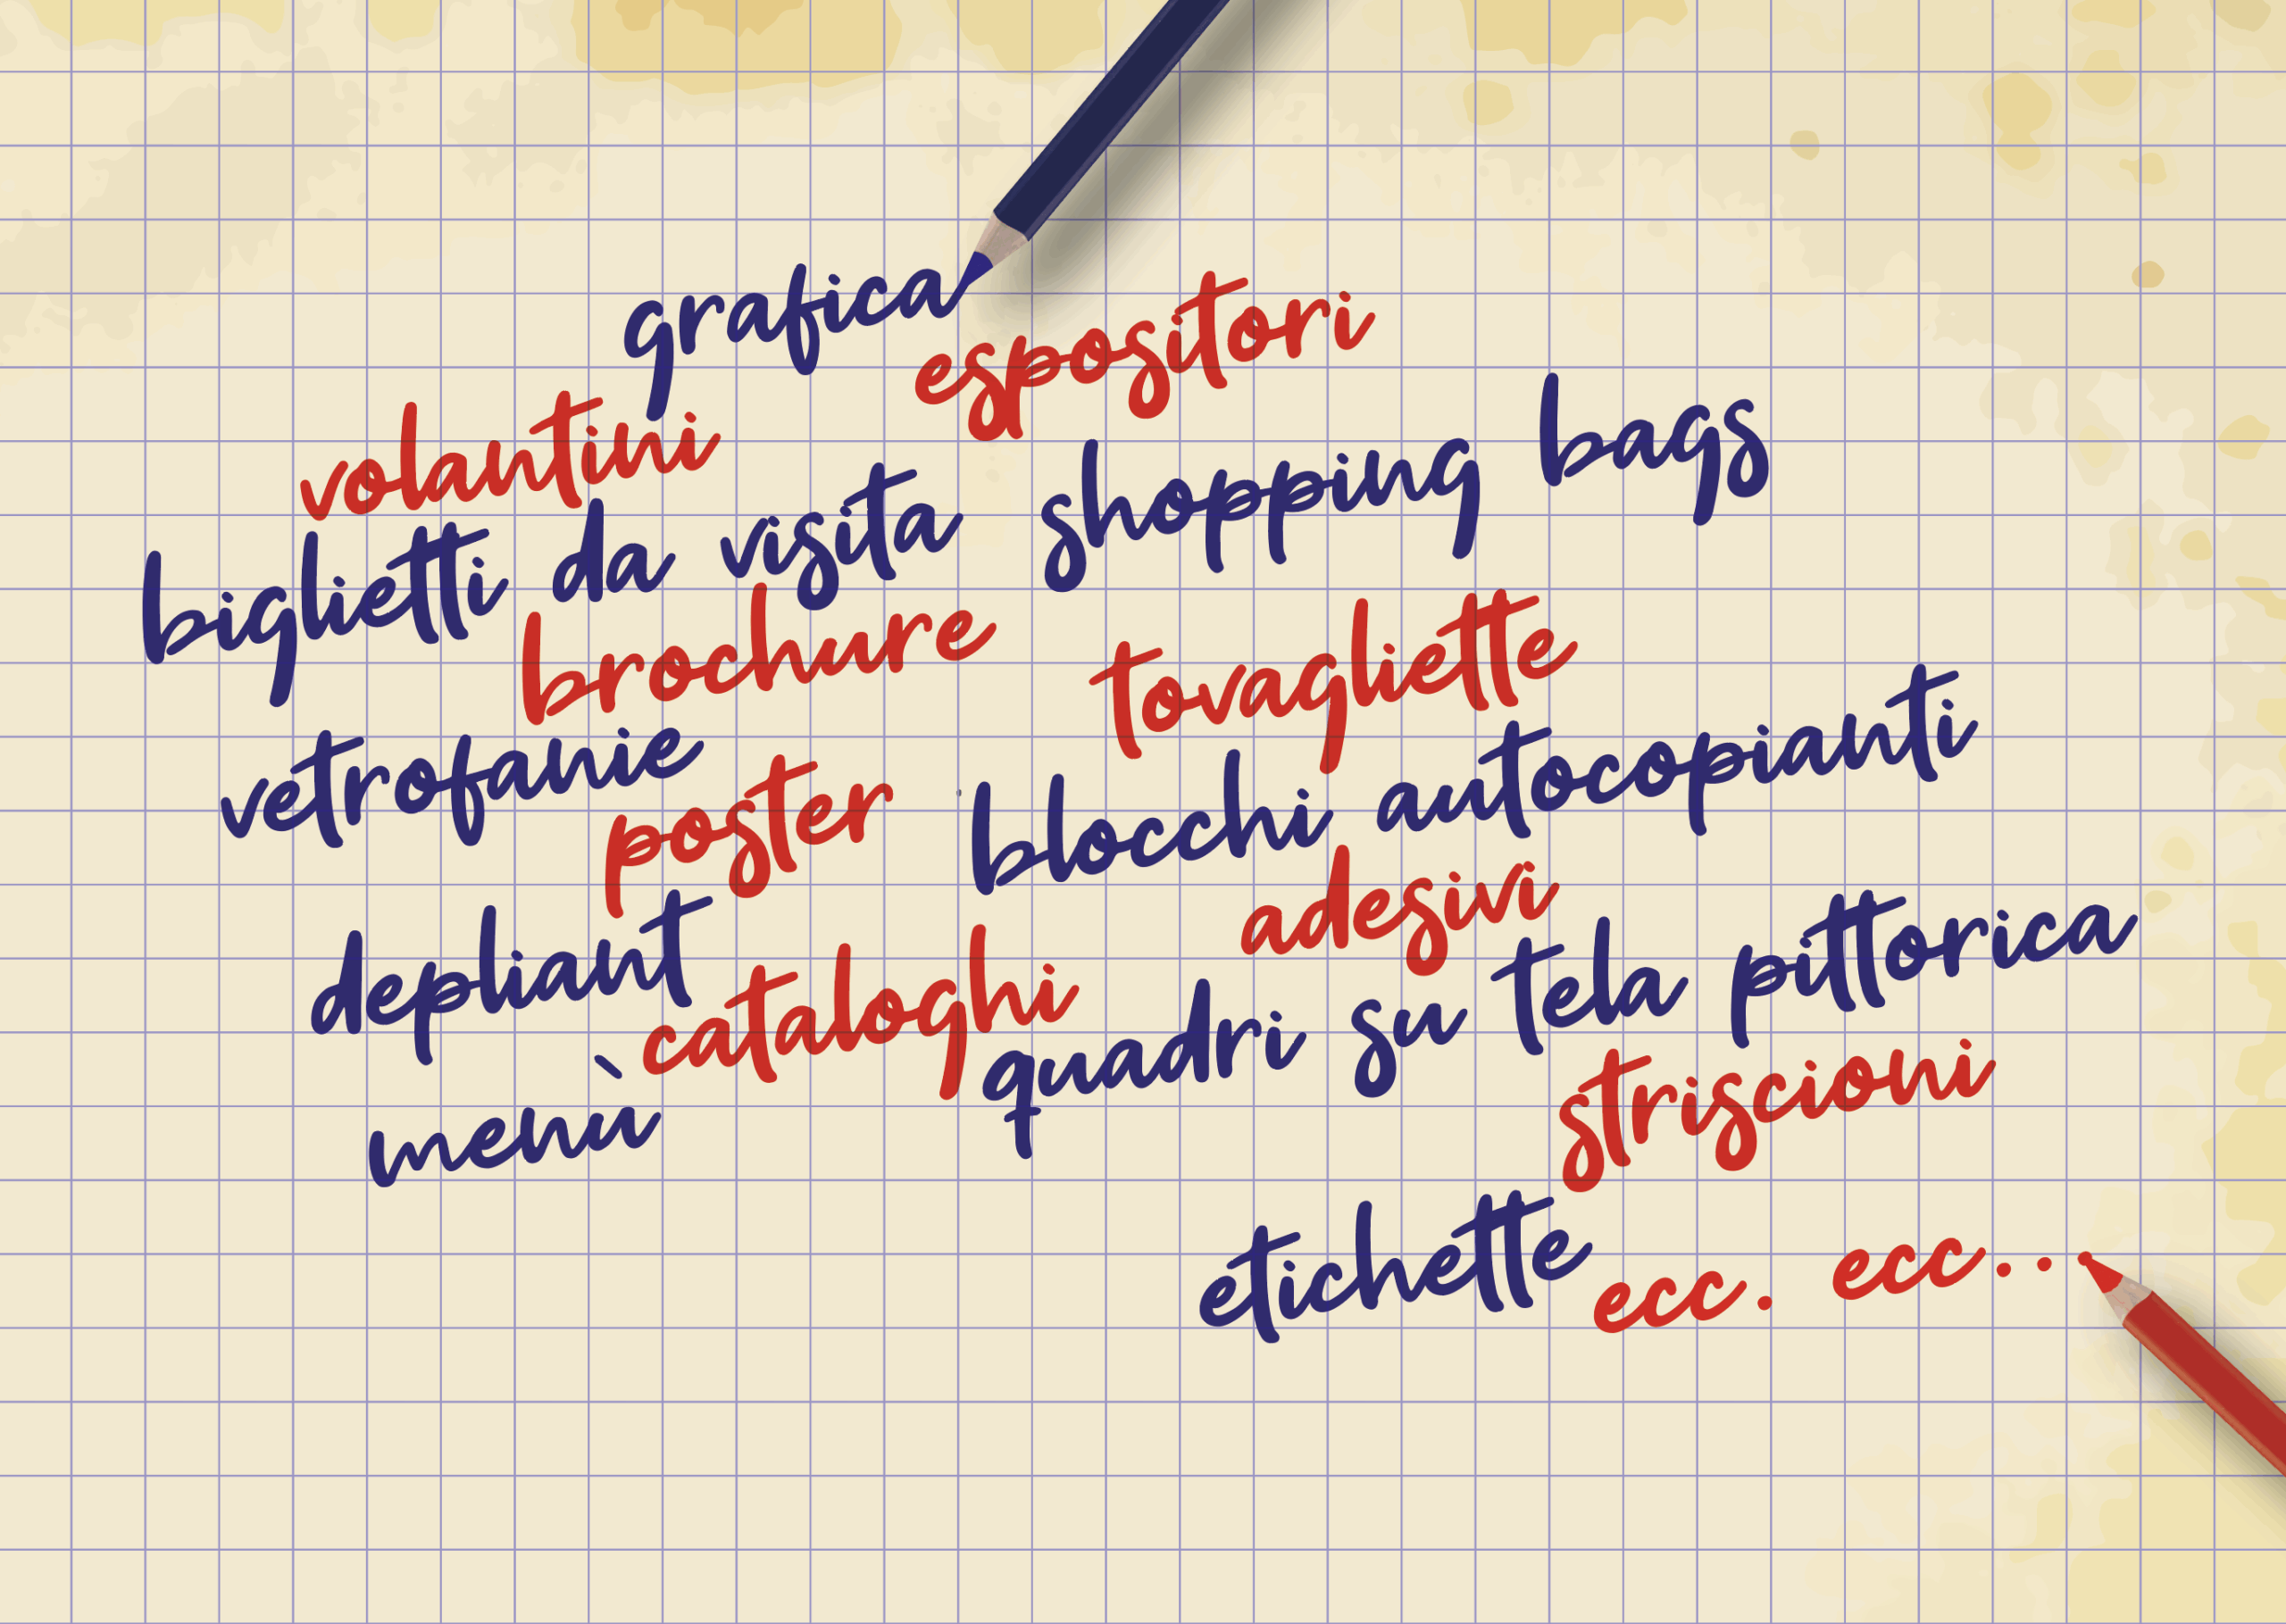 grafica
espositori
volantini
biglietti da visita
shopping bags
brochure
tovagliette
vetrofanie
poster
blocchi autocopianti
adesivi
depliant
cataloghi
quadri su tela pittorica
menù
striscioni
etichette
ecc. ecc...